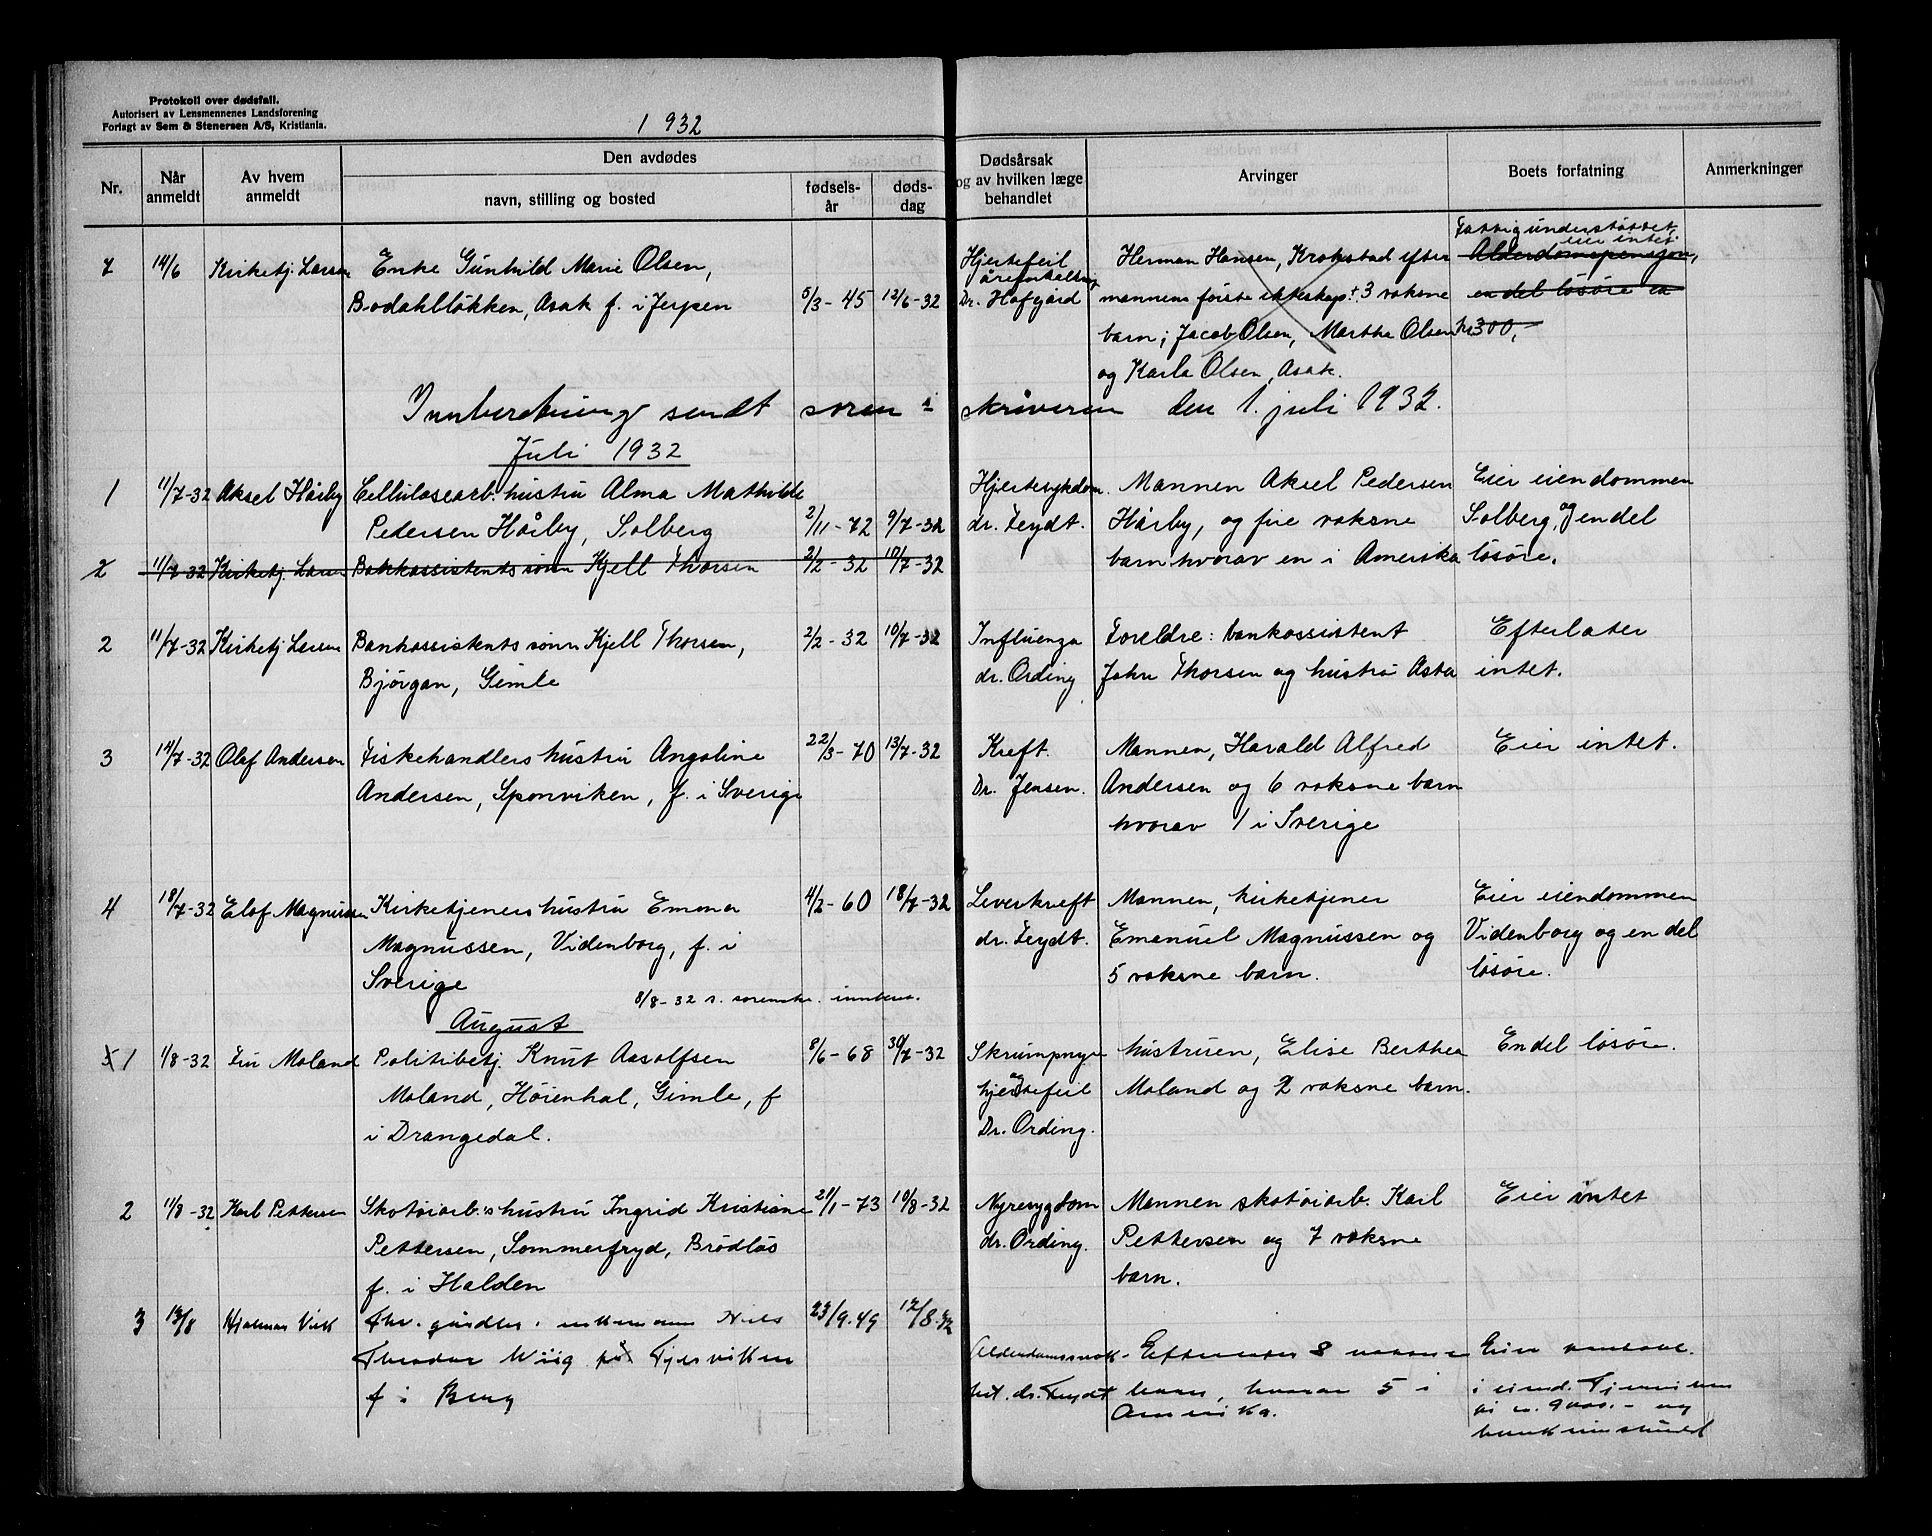 Protokoll over dødsfall.
Autorisert av Lensmennenes Landsforening
Forlagt av Sem & Stenersen A/S, Kristiania.
1932
Nr.
Når anmeldt
Av hvem anmeldt
Den avdødes
navn, stilling og bosted
fødsels-år
døds-dag
Dødsårsak og av hvilken læge behandlet
Arvinger
Boets forfatning
Anmerkninger
7 14/6 Kirketj. Larsen Enke Gunhild Marie Olsen, Hjertefeil Herman Hansen, Krokstad efter Fattigunderstøttet, eier intet. Alderdomspensjon,
Bodahlløkken, Asak f. i Jerpen 5/3-45 12/6-32 åreforkalkning Dr. Hofgård mannens første ekteskap + 3 voksne en del løsøre ca
barn; Jacob Olsen, Marthe Olsen kr 300,-
og Karla Olsen, Asak.
Innberetning sendt sorenskriveren den 1. juli 1932.
Juli 1932
1 11/7-32 Aksel Hårby Cellulosearb. hustru Alma Mathilde Hjertesykdom. Mannen Aksel Pedersen Eier eiendommen
Pedersen Hårby, Solberg 2/11-72 9/7-32 dr. Feydt. Hårby, og fire voksne Solberg, og endel
2 11/7-32 Kirketj. Larsen Bakkassistents sønn Kjell Thorsen 2/2-32 10/7-32 barn hvorav en i Amerika løsøre.
2 11/7-32 Kirketj Larsen Bankassistents sønn Kjell Thorsen, 2/2-32 10/7-32 Influenza Foreldre: bankassistent Efterlater
Bjørgan, Gimle dr. Ording John Thorsen og hustru Asta intet.
3 14/7-32 Olaf Andersen Fiskehandlers hustru Angoline 22/3-70 13/7-32 Kreft. Mannen, Harald Alfred Eier intet.
Andersen, Sponviken, f. i Sverige Dr. Jensen. Andersen og 6 voksne barn
hvorav 1 i Sverige
4 18/7-32 Elof Magnussen Kirketjeners hustru Emma 4/2-60 18/7-32 Leverkreft Mannen, kirketjener Eier eiendommen
Magnussen, Videnborg, f. i dr. Feydt. Emanuel Magnussen og Videnborg og en del
Sverige 5 voksne barn. løsøre.
8/8-32 s. sorenskr. innber.
August
1 1/8-32 Fru Moland Politibetj. Knut Aasolfsen 8/6-68 30/7-32 Skrumpnyre hustruen, Elise Berthea Endel løsøre.
Moland, Høienhal, Gimle, f og hjertefeil Moland og 2 voksne barn.
i Drangedal. Dr. Ording.
2 11/8-32 Karl Pettersen Skotøiarb.s hustru Ingrid Kristiane 21/1-73 10/8-32 Nyresygdom Mannen skotøiarb. Karl Eier intet
Pettersen, Sommerfryd, Brødløs dr. Ording. Pettersen og 7 voksne
f. i Halden barn.
3 13/8 Hjalmar Viik fhv. gårdbr. enkemann Nils 23/9.49 12/8.32
Theodor Wiig på Tjersvikken Alderdomssvak- Efterlater 8 voksne Eier
f i Berg het. dr. Feydt barn, hvorav 5 i i eiend.
Amerika. kr. 9000.- og
bankinnskudd